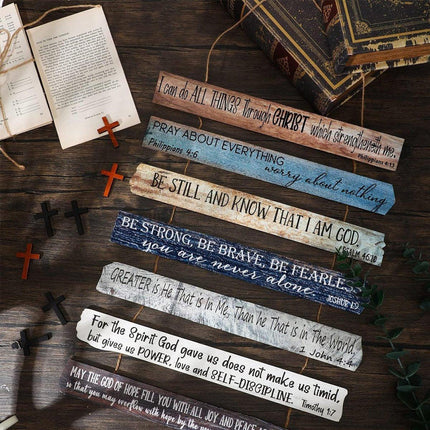 I can do ALL THINGS through CHRIST which strengtheneth me.
Philippians 4:13
PRAY ABOUT EVERYTHING
worry about nothing
Philippians 4:6
BE STILL AND KNOW THAT I AM GOD.
PSALM 46:10
BE STRONG, BE BRAVE, BE FEARLESS
you are never alone
JOSHUA 1:9
GREATER is He That is in Me, Than he That is In The World.
1 John 4:4
For the Spirit God gave us does not make us timid,
but gives us POWER, love and SELF-DISCIPLINE.
Timothy 1:7
MAY THE GOD OF HOPE FILL YOU WITH ALL JOY AND PEACE AS
so that you may overflow with hope by the